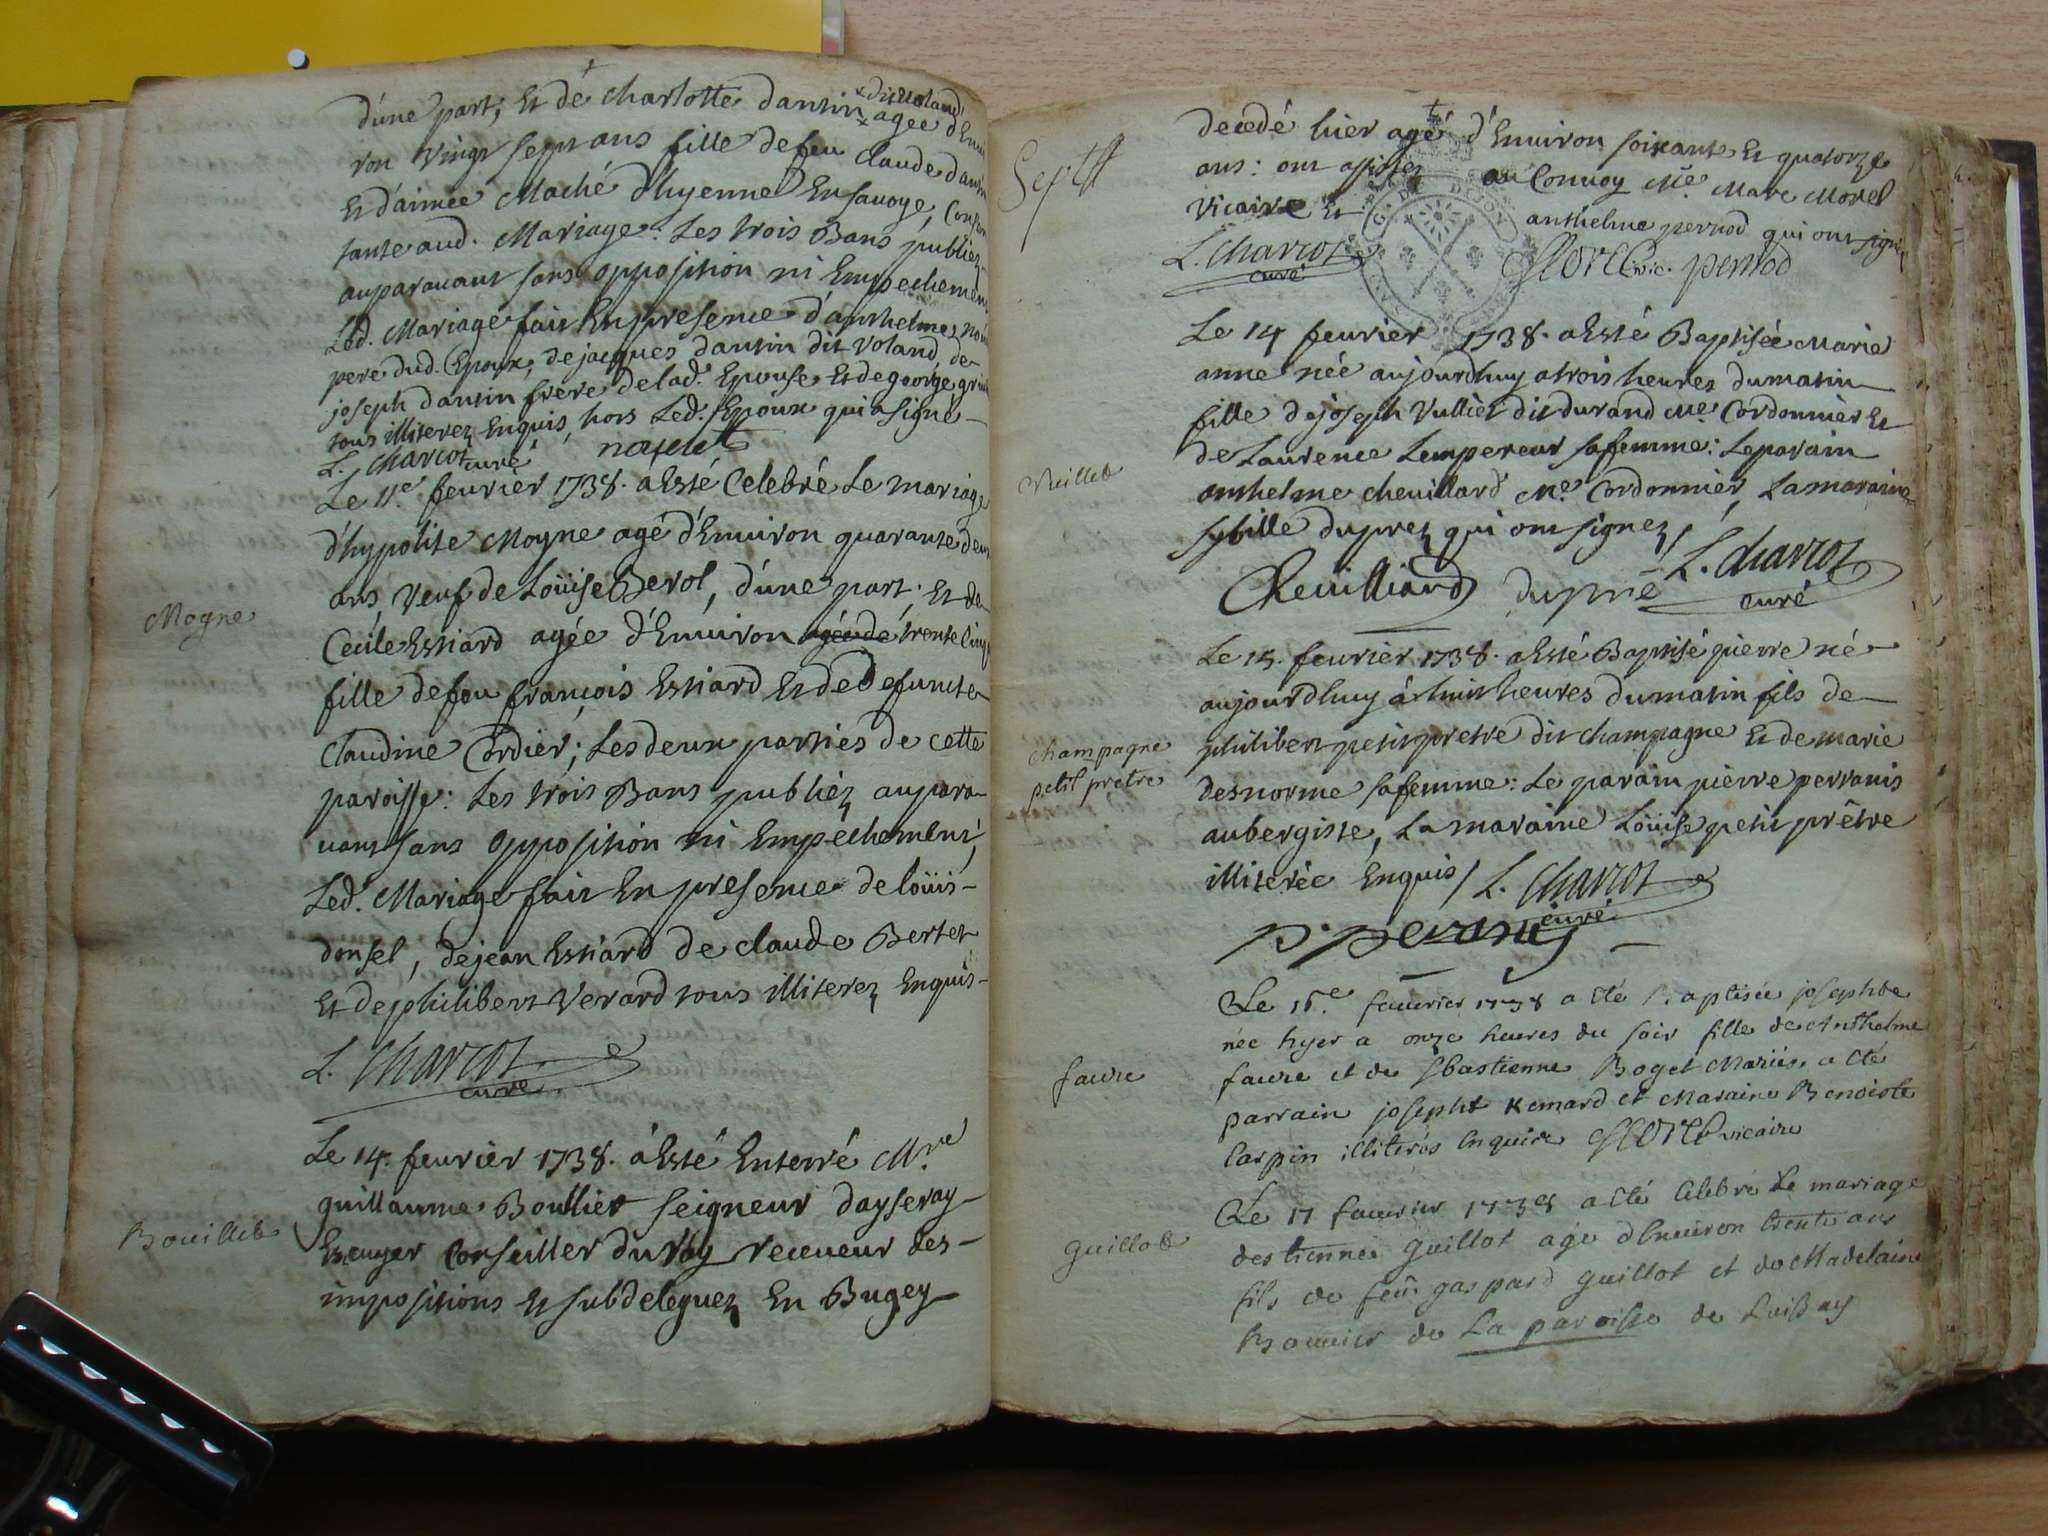 d'une part, Et de charlotte dantin × dit Voland
× agée d'Envi
ron Vingt sept ans fille de feu Claude dantin
Et d'aimée Maché d'hyenne En Savoye, Consen
tante aud. Mariage: Les trois Bans publiez
auparavant sans opposition ni Empechement
Led. Mariage fait En presence d'anthelme
pere dud. Epoux, de jacques dantin dit Voland, de
joseph dantin frere de lad. Epouse, Et de george
tous illiterez Enquis, hors Led. Epoux qui a signé
L. Charcot curé
Le 11e. fevrier 1738. a Esté Celebré Le mariage
Moyne
d'hypolite Moyne agé d'Environ quarante deux
ans, Veuf de Loüise Berol, d'une part; Et de
Cecile Estiard agée d'Environ agée de trente cinq
fille de feu françois Estiard Et de Defuncte
Claudine Cordier; Les deux parties de cette
paroisse: Les trois Bans publiez aupara
vant sans opposition ni Empechement,
Led. Mariage fait En presence de loüis
donsel, de jean Estiard de claude Bertet
Et de philibert Verard tous illiterez Enquis
L. Charcot
curé
Le 14. fevrier 1738. à Esté Enterré Mre.
Bouillet
guillaume Boullier seigneur d'ayseray
Ecuyer Conseiller du roy receveur des
impositions Et subdeleguez En Bugey
decedé hier agé d'Environ soixante Et quatorze
Sepult
ans: ont assisté au Convoy Me. Marc Morel
Vicaire Et anthelme pernod qui ont signé
L. Charcot
curé
Morel vic. pernod
Le 14 fevrier 1738. a Esté Baptisée Marie
anne née aujourdhuy a trois heures du matin
fille de joseph Vulliet dit durand Me Cordonnier Et
de Laurence Lempereur sa femme: Le parain
Vuillet
anthelme chevillard Me. Cordonnier, La maraine
sybille duprez qui ont signez /
L. Charcot
curé
Chevilliard dupré
Le 15. fevrier 1738. a Esté Baptisé pierre né
aujourdhuy à huit heures du matin fils de
champagne
petit prêtre
philibert petit pretre dit champagne Et de marie
desnorme sa femme: Le parain pierre perranis
aubergiste, La maraine Loüise petit prêtre
illiterée Enquis / L. Charcot
curé
Le 16e. feuvrier 1738 a eté Baptisée josephte
née hyer a onze heures du soir fille de Anthelme
faure
faure et de Sbastienne Boget Mariés, a eté
parrain josepht Remard et Maraine Benoiste
Carpin illiterés Enquire Morel vicaire
Le 17 feuvrier 1738 a eté Celebré Le mariage
Guillot
destienne Guillot agé dEnviron trente ans
fils de feu gaspard Guillot et de Madelaine
de La paroisse de